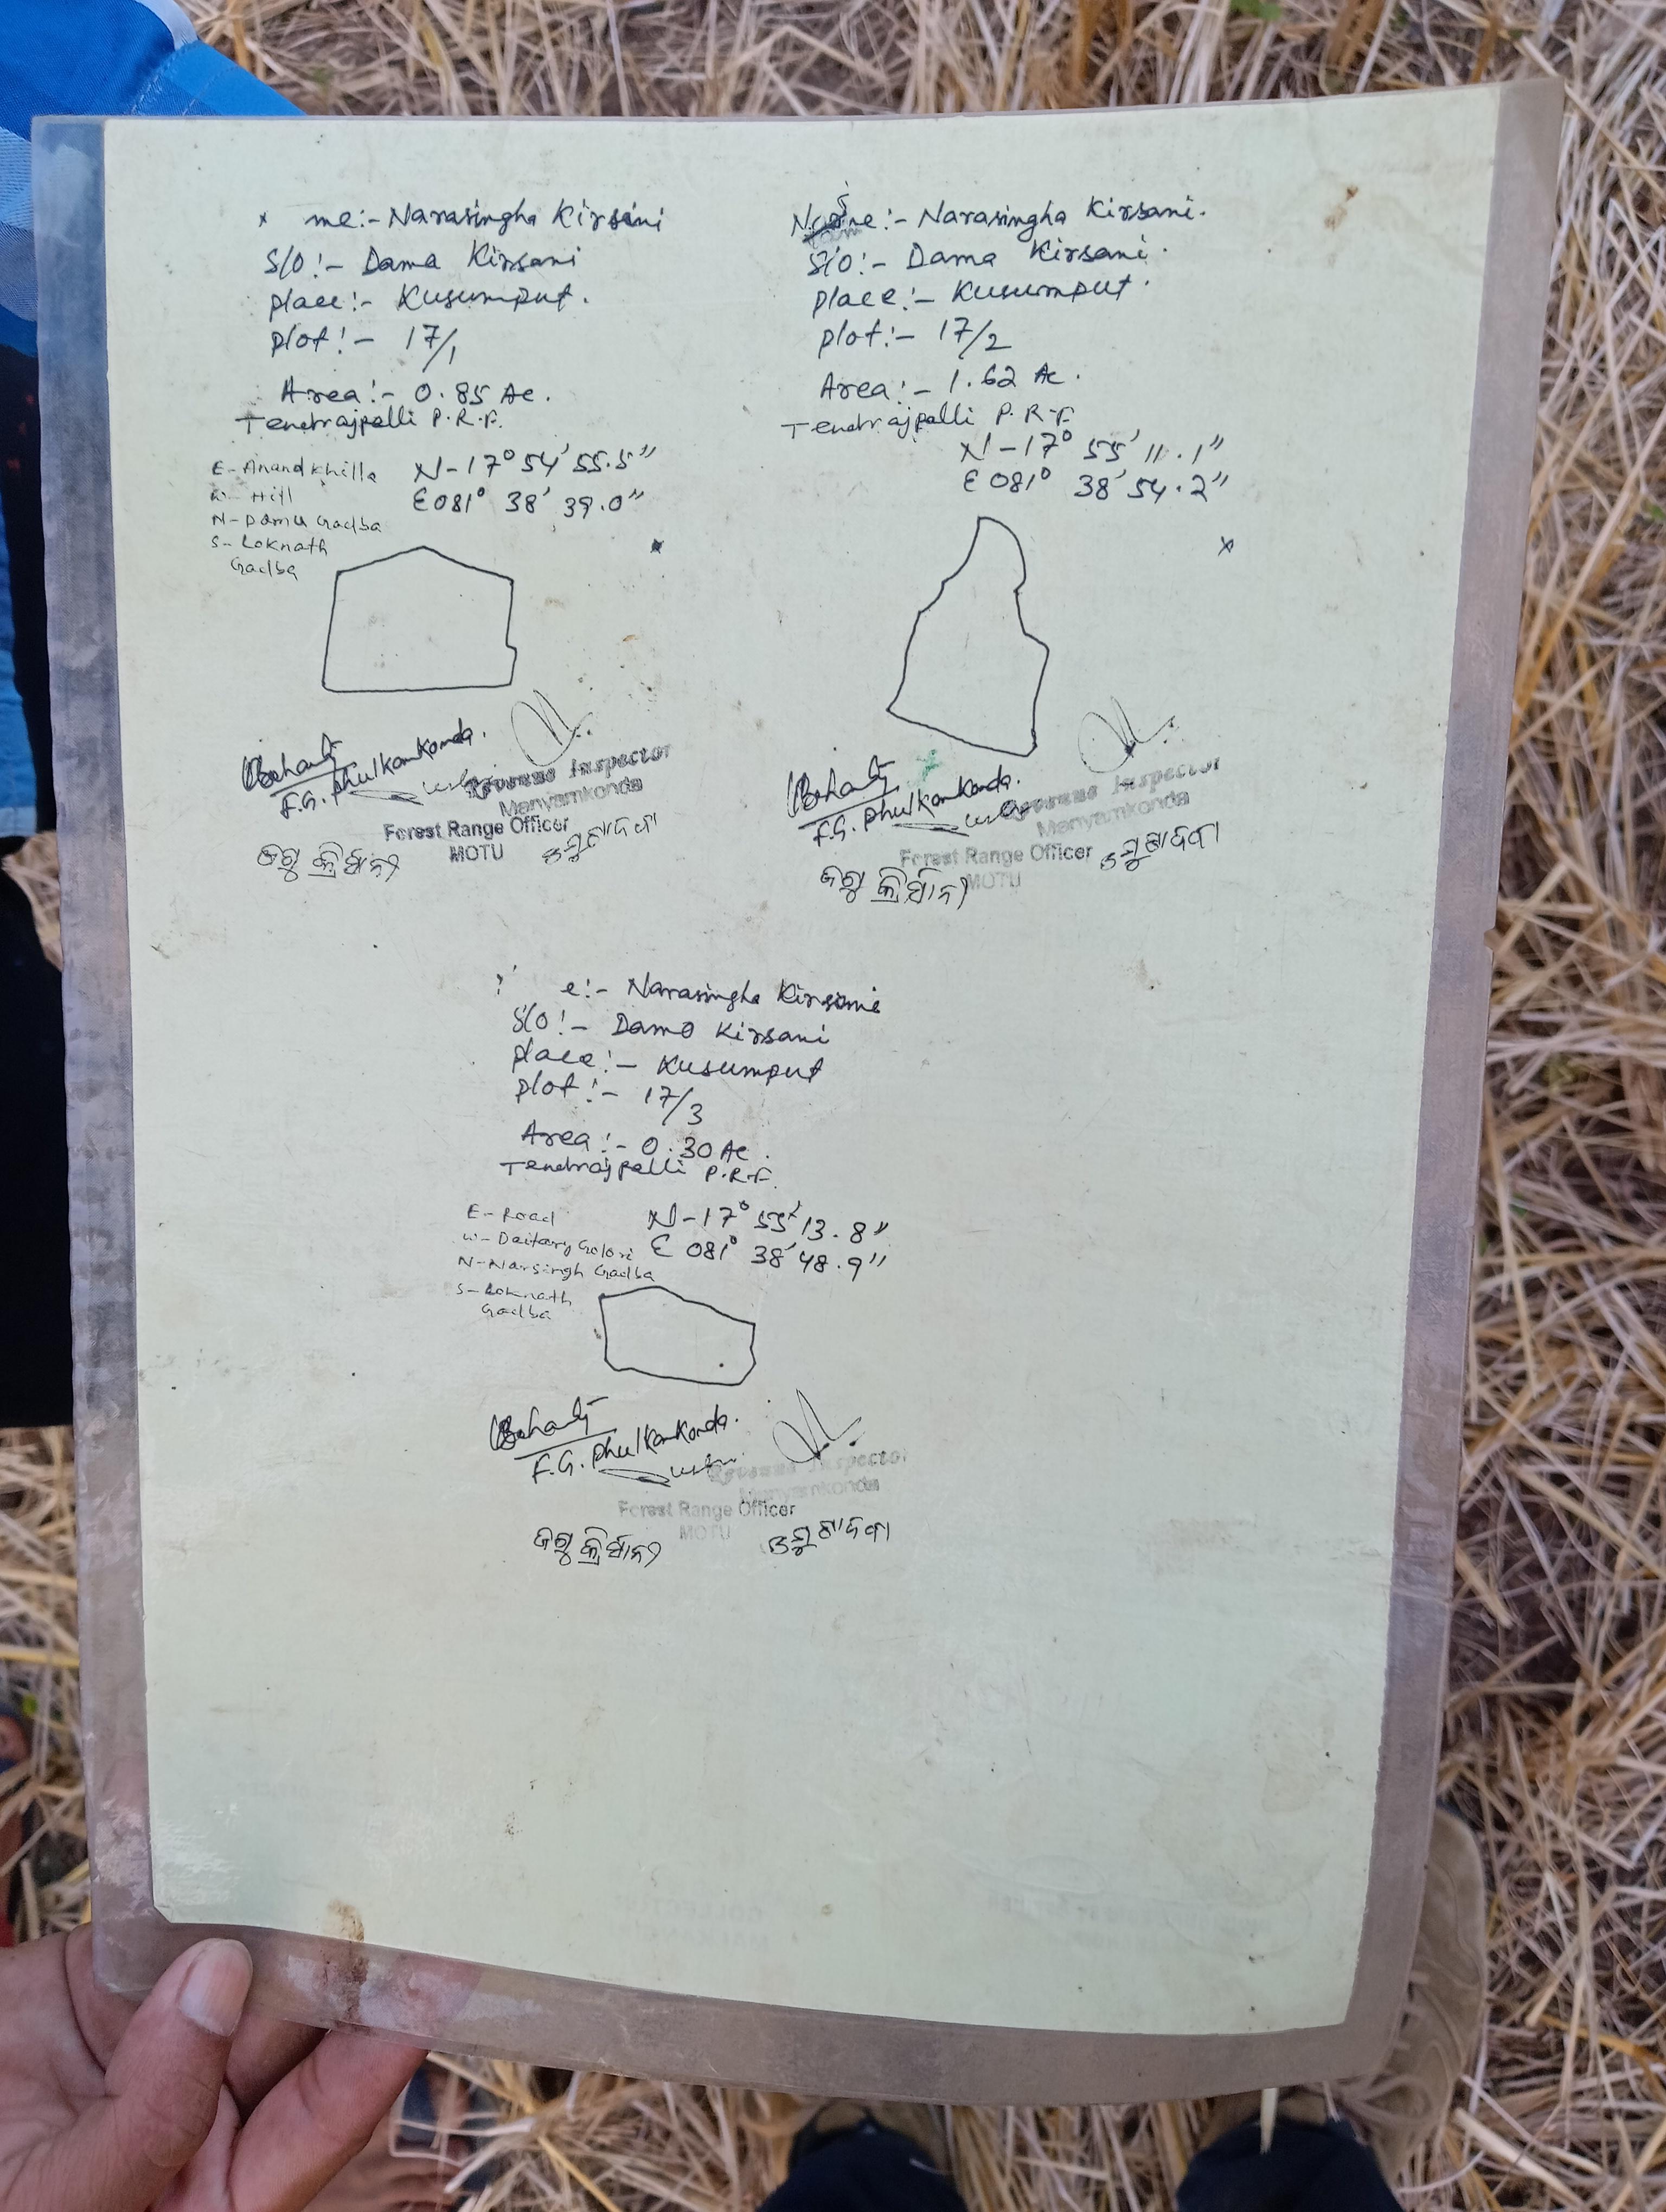 me:- Narasingha Kirsani
S/O:- Dama Kirsani
place:- Kusumput.
plot:- 17/1
Area:- 0.85 Ac.
Tendrajpalli P.R.F.
N-17° 54' 55.5"
E 081° 38' 39.0"
E- Anand Khilla
W- Hill
N- Damu Gadba
S- Loknath
Gadba
F.G. Phulkankonda.
Revenue Inspector
Manyamkonda
Forest Range Officer
MOTU
Name:- Narasingha Kirsani.
S/O:- Dama Kirsani.
place:- Kusumput.
plot:- 17/2
Area:- 1.62 Ac.
Tendrajpalli P.R.F.
N-17° 55' 11.1"
E 081° 38' 54.2"
F.G. Phulkankonda.
Revenue Inspector
Manyamkonda
Forest Range Officer
MOTU
e:- Narasingha Kirsani
S/O:- Damo Kirsani
place:- Kusumput
plot:- 17/3
Area:- 0.30 Ac.
Tendrajpalli P.R.F.
N-17° 55' 13.8"
E 081° 38' 48.9"
E- Road
W- Daitary Golori
N- Narsingh Gadba
S- Loknath
Gadba
F.G. Phulkankonda.
Revenue Inspector
Manyamkonda
Forest Range Officer
MOTU